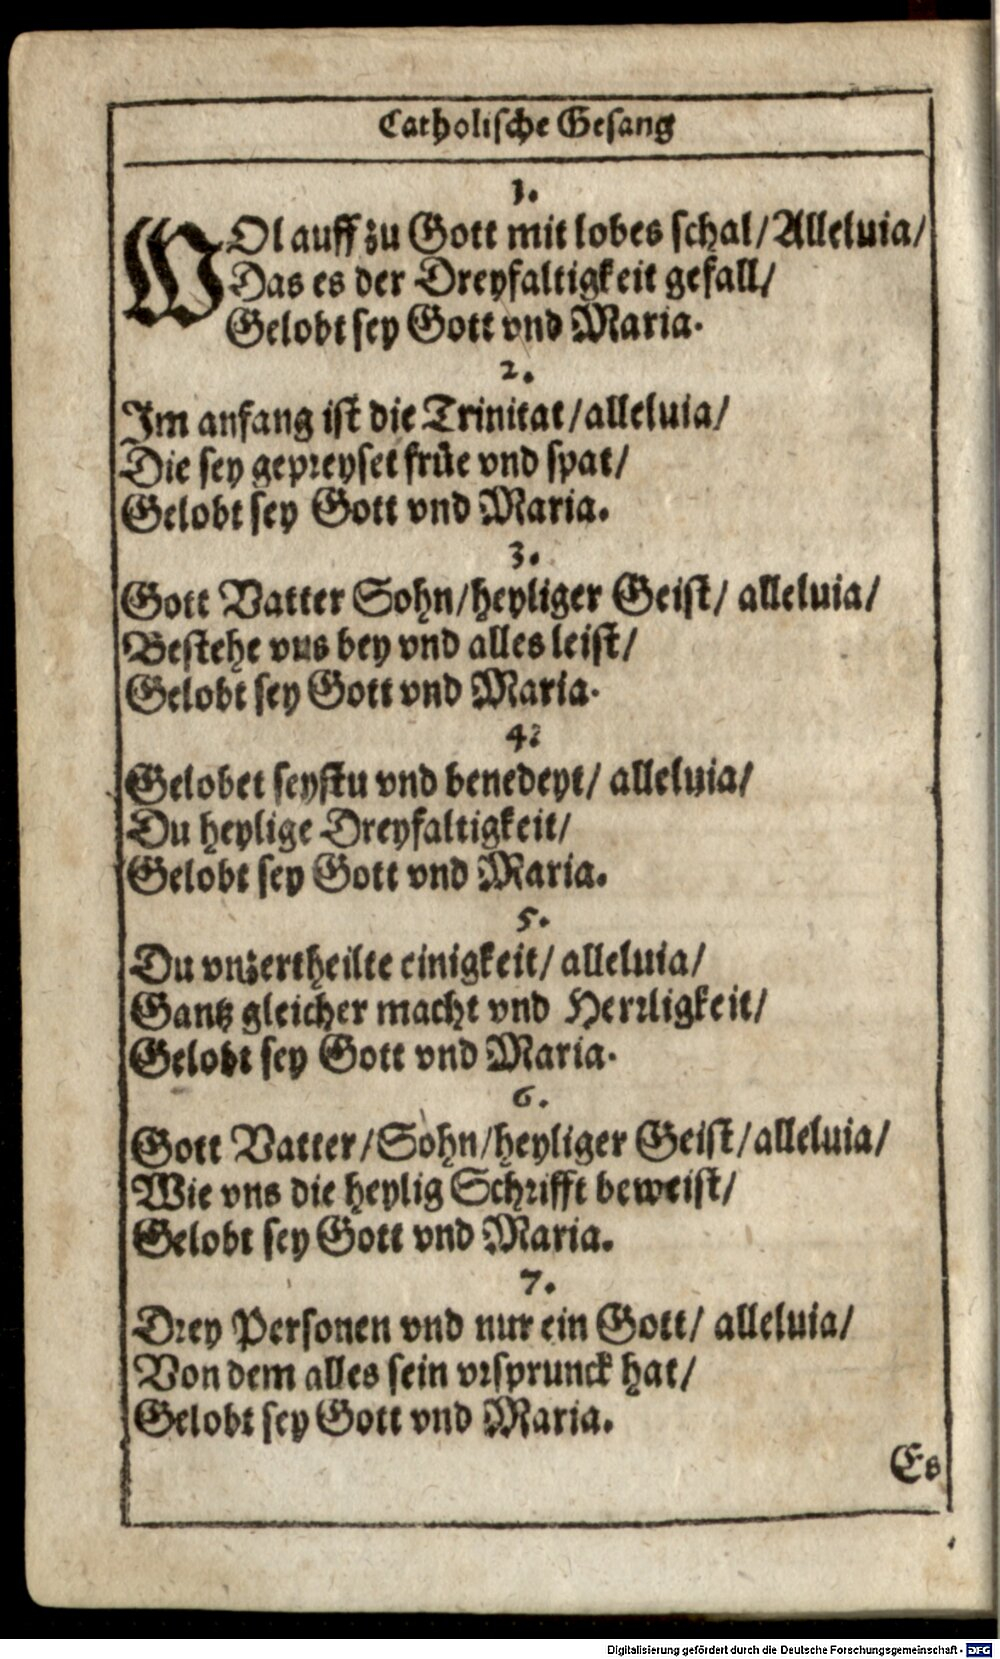 Catholische Gesang
1.
WOl auff zu Gott mit lobes schal/ Alleluia/
Das es der Dreyfaltigkeit gefall/
Gelobt sey Gott vnd Maria.
2.
Im anfang ist die Trinitat/ alleluia/
Die sey gepreyset früe vnd spat/
Gelobt sey Gott vnd Maria.
3.
Gott Vatter Sohn/ heyliger Geist/ alleluia/
Bestehe vns bey vnd alles leist/
Gelobt sey Gott vnd Maria.
4.
Gelobet seystu vnd benedeyt/ alleluia/
Du heylige Dreyfaltigkeit/
Gelobt sey Gott vnd Maria.
5.
Du vnzertheilte einigkeit/ alleluia/
Gantz gleicher macht vnd Herrligkeit/
Gelobt sey Gott vnd Maria.
6.
Gott Vatter/ Sohn/ heyliger Geist/ alleluia/
Wie vns die heylig Schrifft beweist/
Gelobt sey Gott vnd Maria.
7.
Drey Personen vnd nur ein Gott/ alleluia/
Von dem alles sein vrsprunck hat/
Gelobt sey Gott vnd Maria.
Es
Digitalisierung gefördert durch die Deutsche Forschungsgemeinschaft - DFG